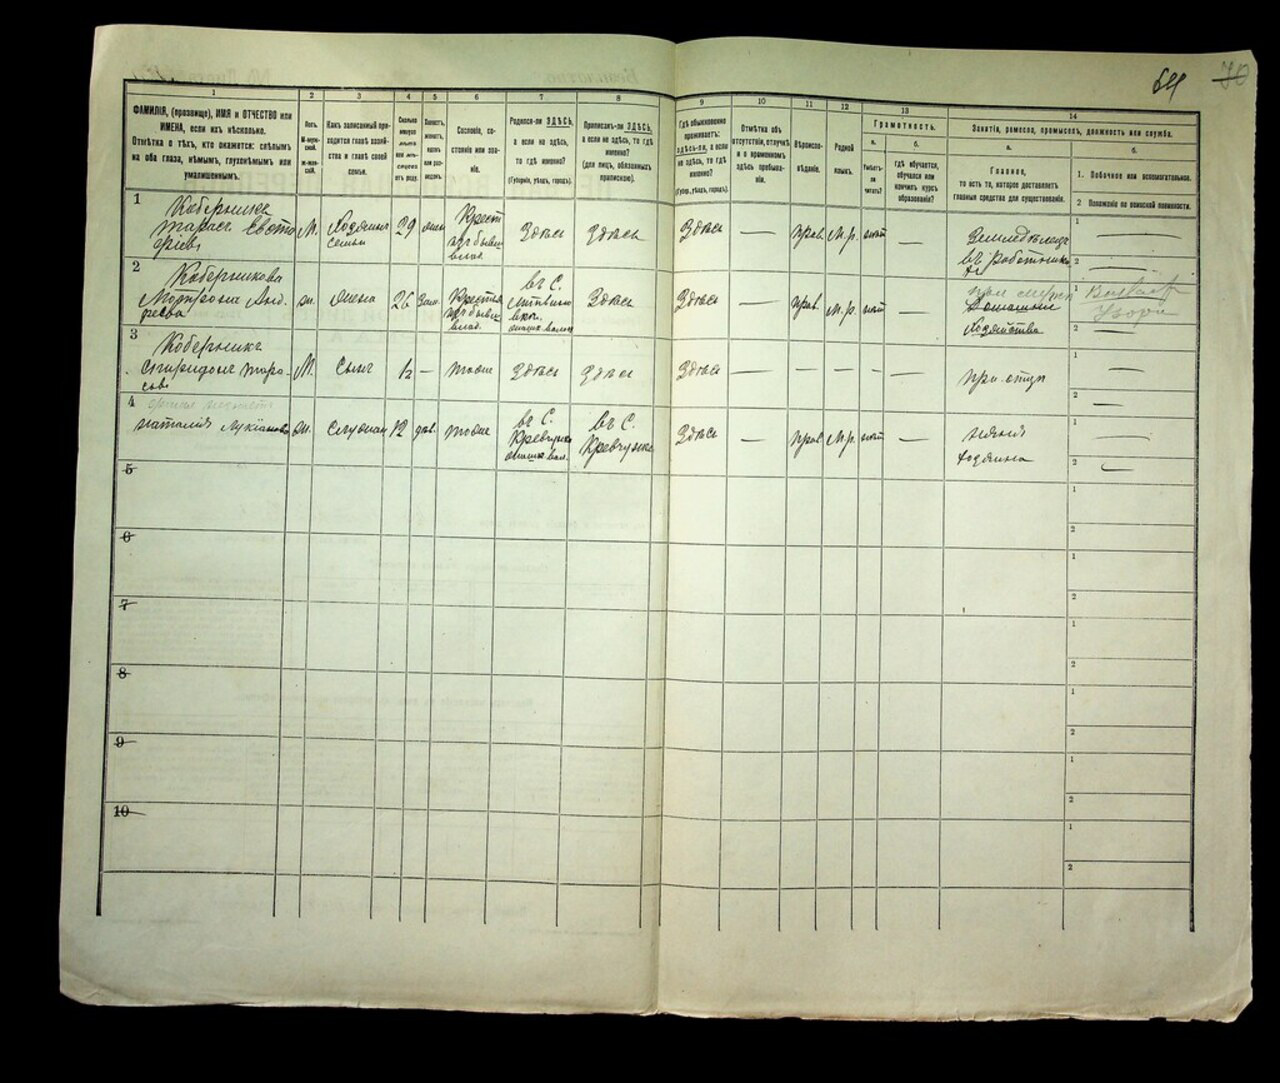 64 70
1
ФАМИЛІЯ, (прозвище), ИМЯ и ОТЧЕСТВО или
ИМЕНА, если ихъ нѣсколько.
Отмѣтка о тѣхъ, кто окажется: слѣпымъ
на оба глаза, нѣмымъ, глухонѣмымъ или
умалишеннымъ.
2
Полъ.
М-муж-
ской.
ж-жен-
скій.
3
Какъ записанный при-
ходится главѣ хозяй-
ства и главѣ своей
семьи.
4
Сколько
минуло
лѣтъ
или мѣ-
сяцевъ
отъ роду.
5
Холостъ,
женатъ,
вдовъ
или раз-
веденъ.
6
Сословіе, со-
стояніе или зва-
ніе.
7
Родился-ли ЗДѢСЬ,
а если не здѣсь,
то гдѣ именно?
(Губернія, уѣздъ, городъ).
8
Приписанъ-ли ЗДѢСЬ,
а если не здѣсь, то гдѣ
именно?
(для лицъ, обязанныхъ
припискою).
9
Гдѣ обыкновенно
проживаетъ:
здѣсь-ли, а если
не здѣсь, то гдѣ
именно?
(Губер., уѣздъ, городъ).
10
Отмѣтка объ
отсутствіи, отлучкѣ
и о временномъ
здѣсь пребыва-
ніи.
11
Вѣроиспо-
вѣданіе.
12
Родной
языкъ.
13
Грамотность.
а.
Умѣетъ-
ли
читать?
б.
гдѣ обучается,
обучался или
кончилъ курсъ
образованія?
14
Занятіе, ремесло, промыселъ, должность или служба.
а.
Главное,
то есть то, которое доставляетъ
главныя средства для существованія.
б.
1. Побочное или вспомогательное.
2 Положеніе по воинской повинности.
1
Коберникъ
Тарасъ Евсто
М.
Хозяинъ
семьи
29
жен
Крест
изъ бывш.
влад.
Здѣсь
Здѣсь
Здѣсь
—
прав.
М.р.
нѣт
—
Земледѣлецъ
1 —
2 —
2
Коберникова
ж.
Жена
26
Зам.
Крестья
изъ бывш.
влад.
въ С.
Здѣсь
Здѣсь
—
прав.
М.р.
нѣт
—
при мужѣ
Домашнее
хозяйство
1
2 —
3
Коберникъ
Спиридонъ Тара-
совъ
М.
Сынъ
½
—
тоже
Здѣсь
Здѣсь
Здѣсь
—
—
—
—
—
при отцѣ
1 —
2 —
4
Наталія Лукіанова
ж.
12
дѣв.
тоже
въ С.
въ С.
Здѣсь
—
прав
М.р.
нѣт
—
няня
хозяина
1 —
2 —
5
1
2
6
1
2
7
1
2
8
1
2
9
1
2
10
1
2